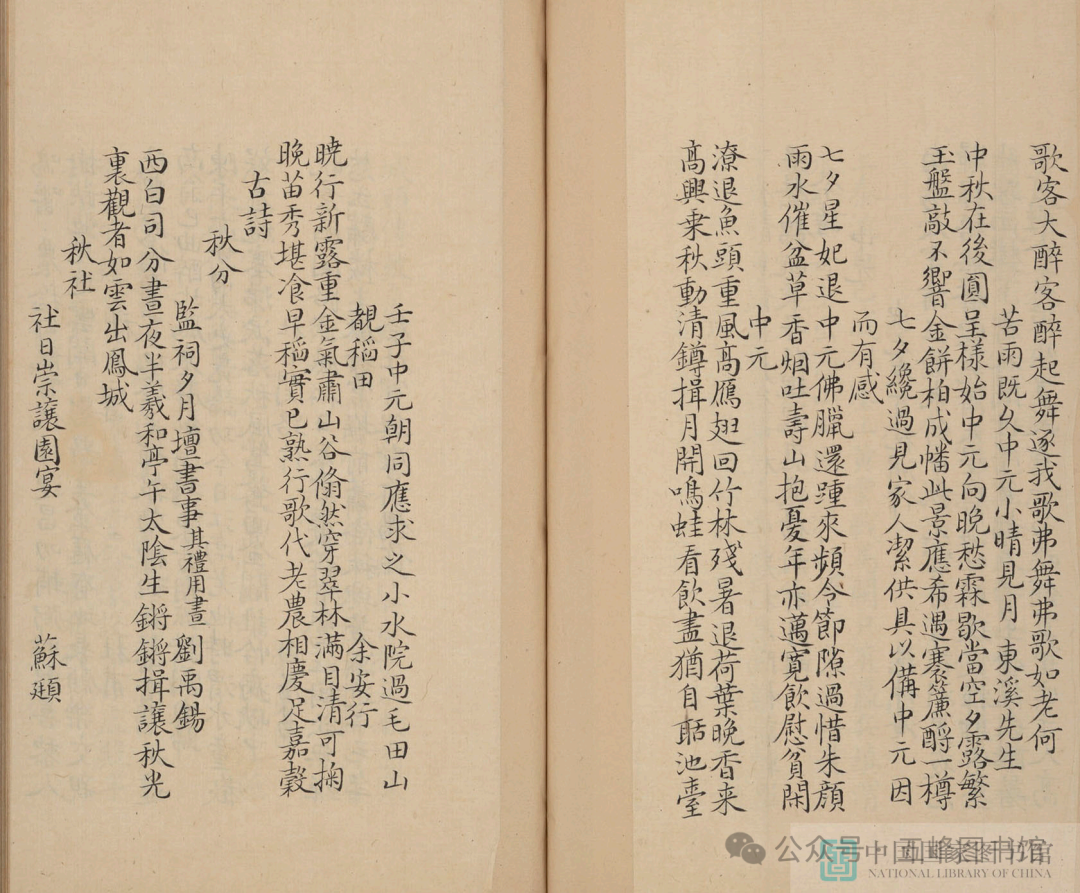 歌客大醉客醉起舞逐我歌弗舞弗歌如老何
苦雨既久中元小晴見月　東溪先生
中秋在後圓呈樣始中元向晚愁霖歇當空夕露繁
玉盤敲不響金餅柏成幡此景應希遇寒簾酹一樽
七夕纔過見家人潔供具以備中元因
而有感
七夕星妃退中元佛臘還踵來頻令節隙過惜朱顔
雨水催盆草香烟吐壽山抱憂年亦邁寛飲慰貧閑
中元
潦退魚頭重風高鴈翅回竹林殘暑退荷葉晚香来
高興乗秋動清鐏揖月開鳴蛙看飲盡猶自聒池臺
壬子中元朝同應求之小水院過毛田山
覩稲田　余安行
暁行新露重金氣肅山谷翛然穿翠林滿目清可掬
晚苗秀堪飡早稲實已熟行歌代老農相慶足嘉穀
古詩
秋分
監祠夕月壇書事其禮用晝　劉禹錫
西白司分晝夜半羲和亭午太陰生鏘鏘揖讓秋光
裏觀者如雲出鳳城
秋社
社日崇讓園宴　蘇頲
公众号·五峰图书馆
中国国家图书馆
NATIONAL LIBRARY OF CHINA